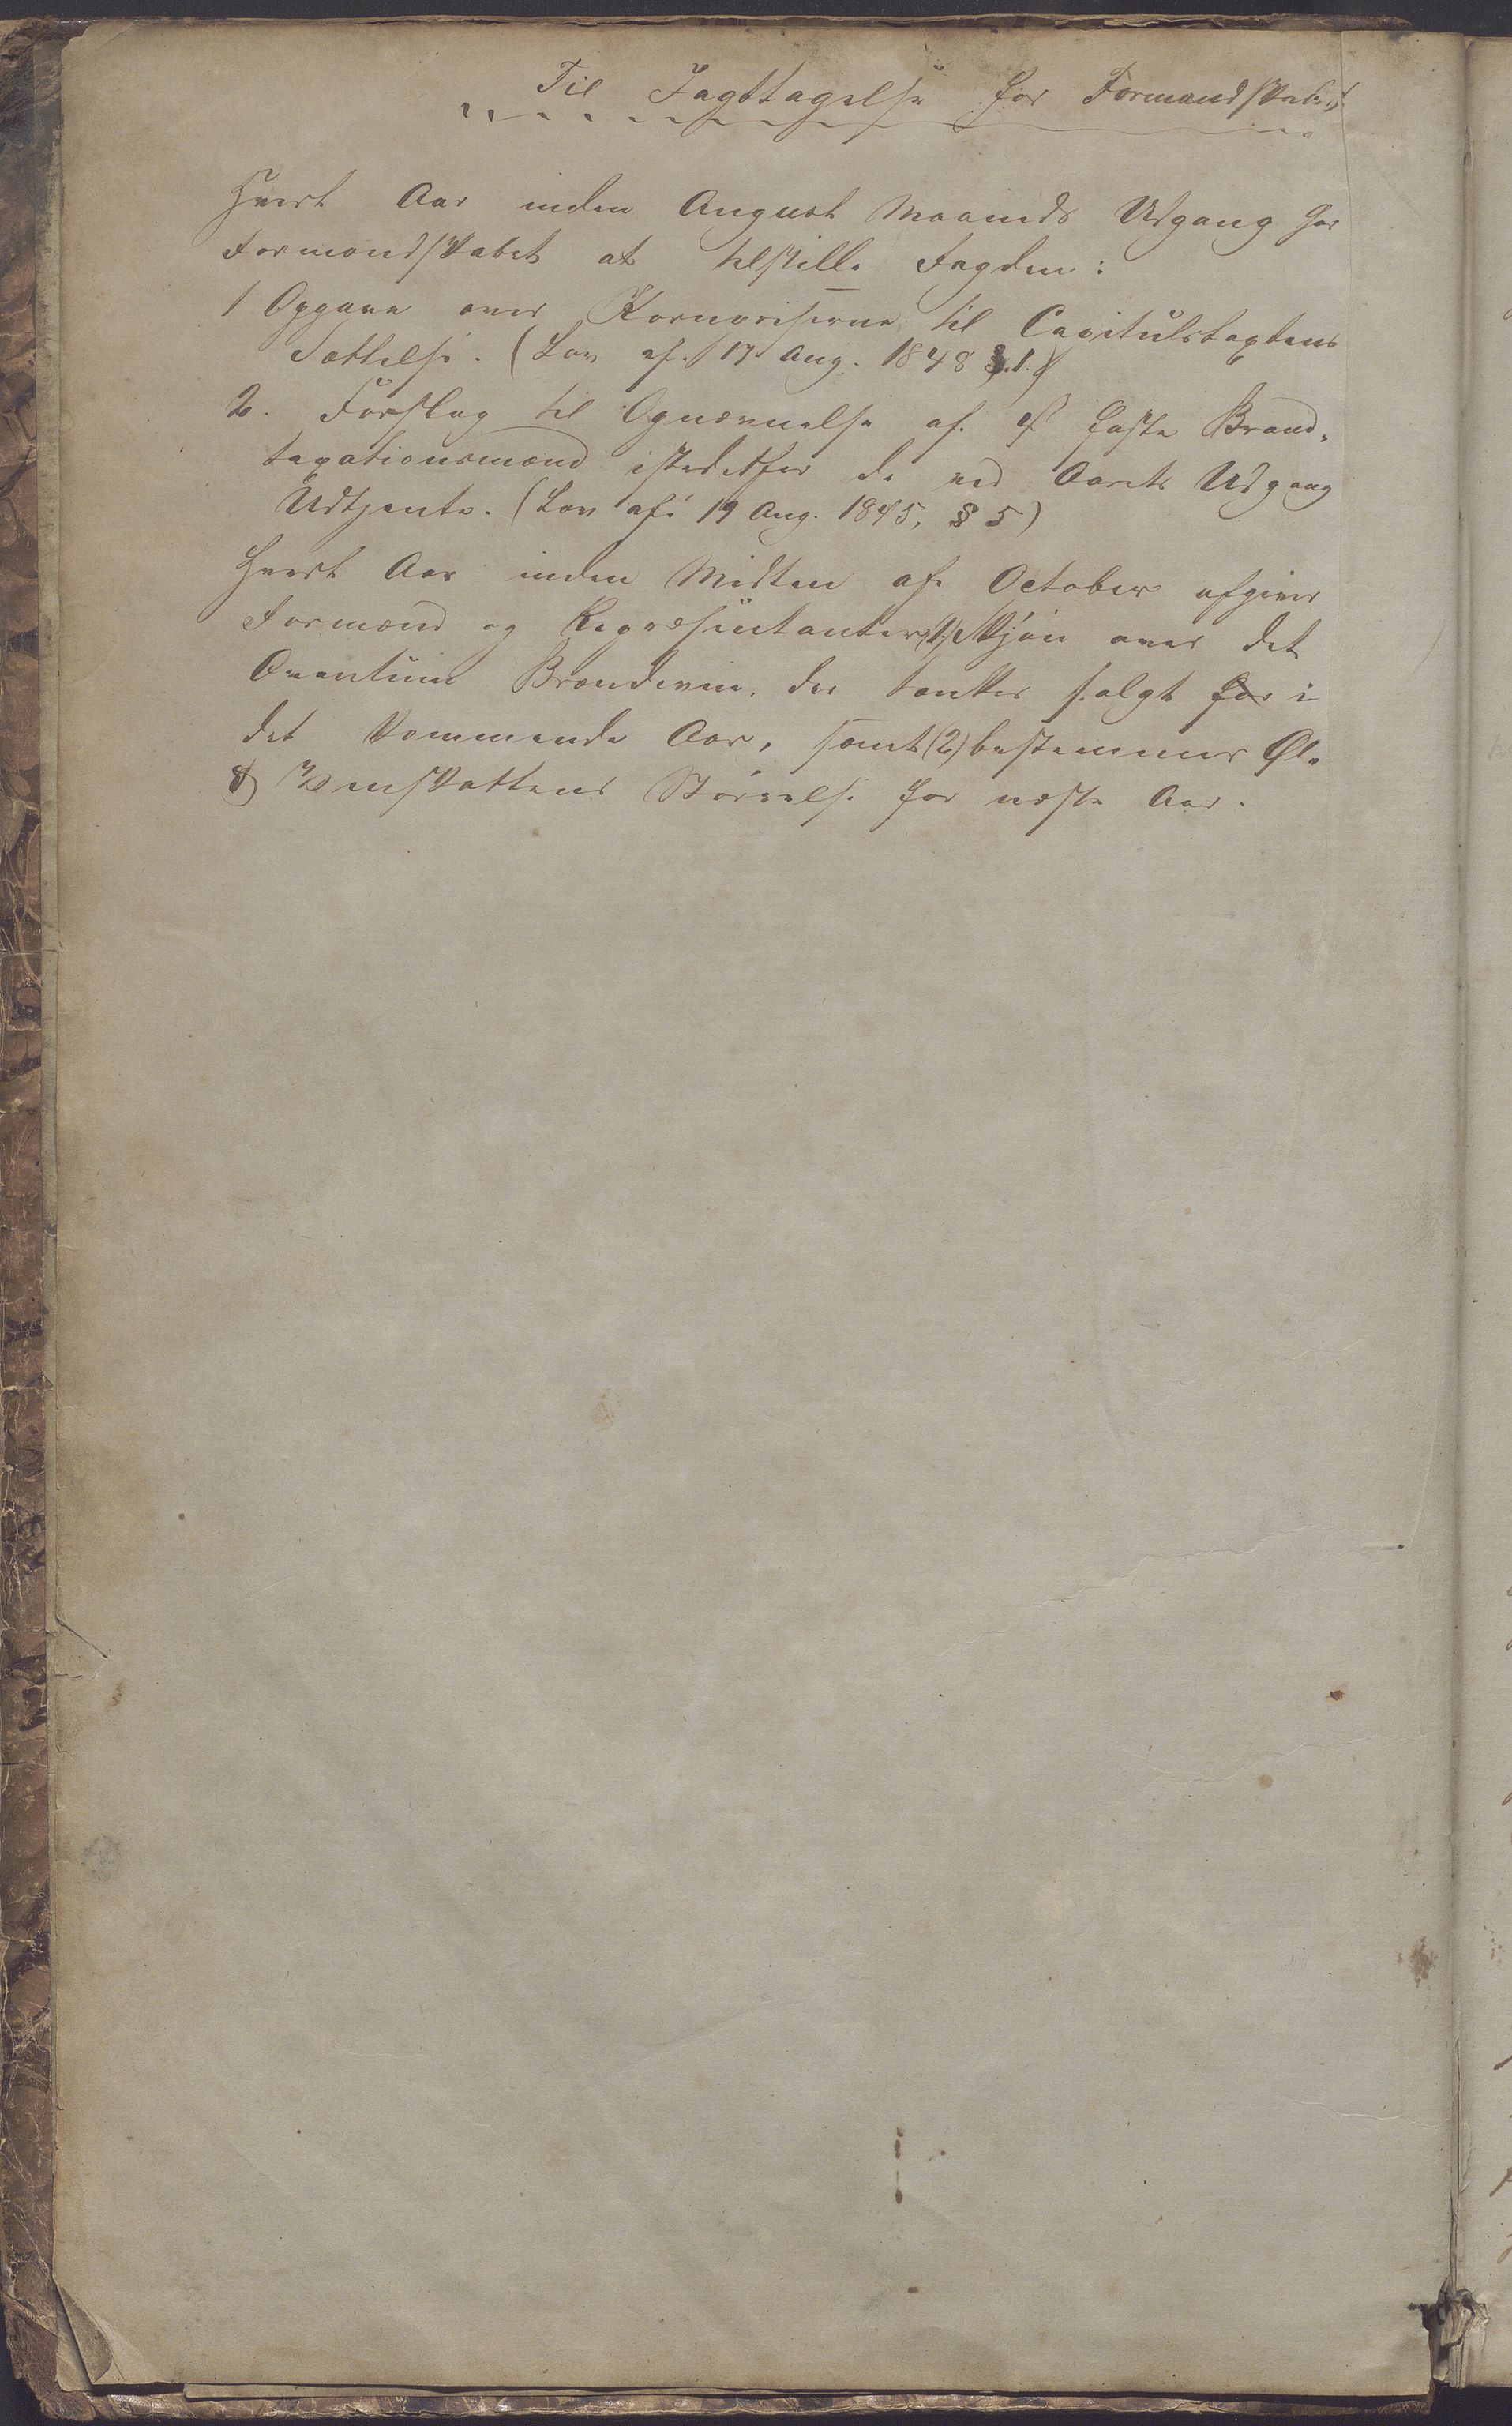 Til Iagttagelse for Formandskabet
Hvert Aar inden August Maaneds Udgang har
Formandskabet at tilstille Fogden:
1 Opgave over Kornpriserne til Capitulstaxtens
Sættelse. (Lov af 17 Aug. 1848 §.1.)
2. Forslag til Opnævnelse af faste Brand-
taxationsmænd istedetfor de ved Aarets Udgang
Udtjente. (Lov af 19 Aug. 1845, § 5)
Hvert Aar inden Midten af October afgiver
Formænd og Repræsentanter (1) Skjøn over det
Quantum Brændeviin, der tænkes solgt for i
det kommende Aar, samt (2) bestemmer Øl-
& Vinskattens Størrelse for næste Aar.